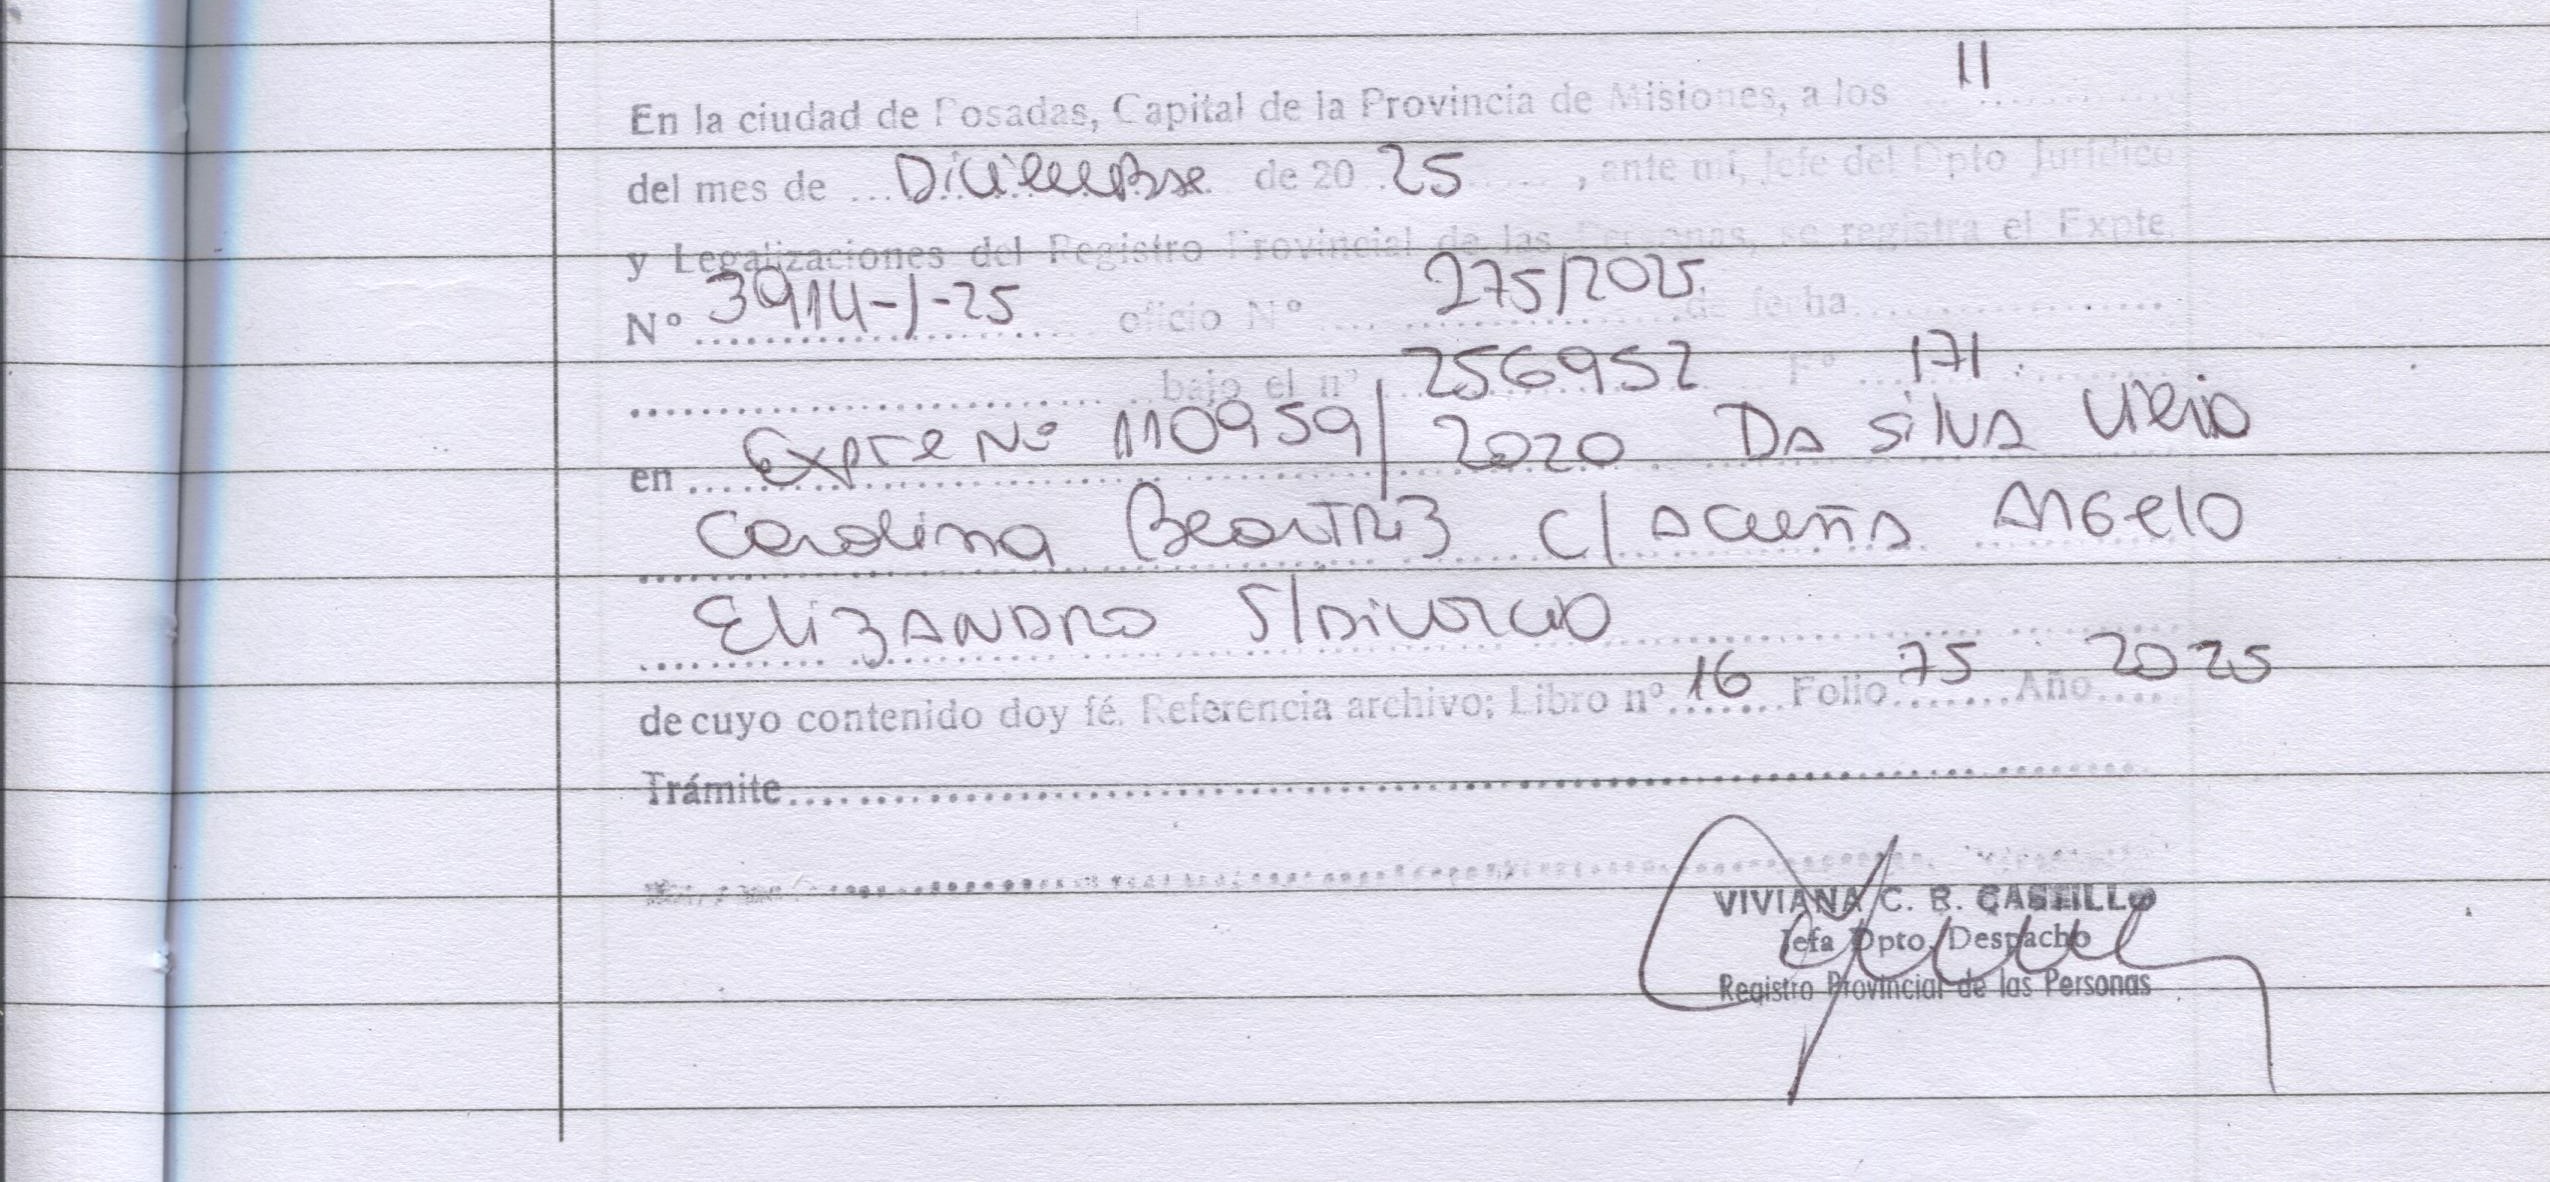 En la ciudad de Posadas, Capital de la Provincia de Misiones, a los 11
del mes de Diciembre de 20 25, ante mí, Jefe del Dpto Jurídico
y Legalizaciones del Registro Provincial de las Personas, se registra el Expte.
Nº 3914-J-25 oficio Nº 275/2025 de fecha
bajo el nº 256952 Fº 171
en Expte Nº 110959/2020 DA SILVA
Carolina BeatRiz C/ ACUÑA ANGelO
EliZANDRO S/DIVORCIO
de cuyo contenido doy fé. Referencia archivo; Libro nº 16 Folio 75 Año 2025
Trámite
VIVIANA C. R. CASTILLO
Jefa Dpto. Despacho
Registro Provincial de las Personas